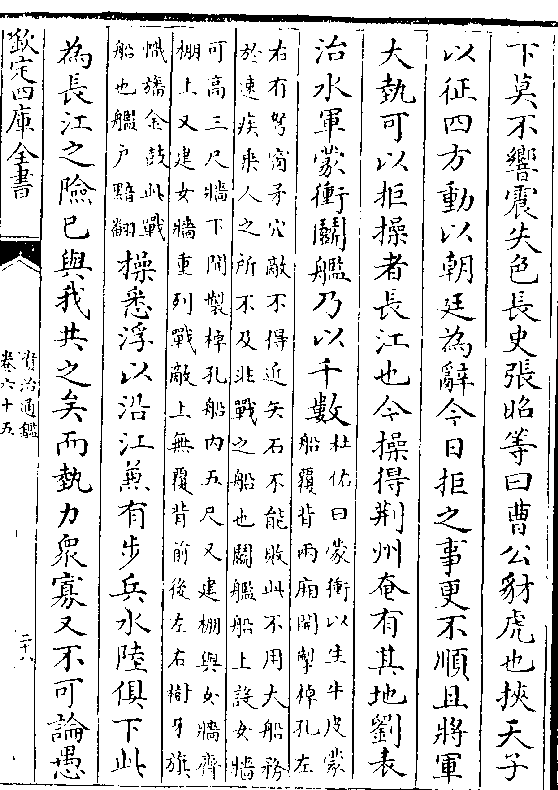 下莫不響震失色長史張昭等曰曹公豺虎也挾天子
以征四方動以朝廷為辭今日拒之事更不順且將軍
大埶可以拒操者長江也今操得荆州奄有其地劉表
治水軍蒙衝鬭艦乃以千數
杜佑曰蒙衝以生牛皮蒙
船覆背兩廂開掣棹孔左
右有弩窗矛穴敵不得近矢石不能敗此不用大船務
於速疾乘人之所不及非戰之船也鬭艦船上設女牆
可高三尺牆下開製棹孔船内五尺又建棚與女牆齊
棚上又建女牆重列戰敵上無覆背前後左右樹牙旗
幟旛金鼓此戰
船也艦户黯翻
操悉浮以沿江兼有步兵水陸俱下此
為長江之險已與我共之矣而埶力衆寡又不可論愚
欽定四庫全書
資治通鑑
卷六十五
二十八